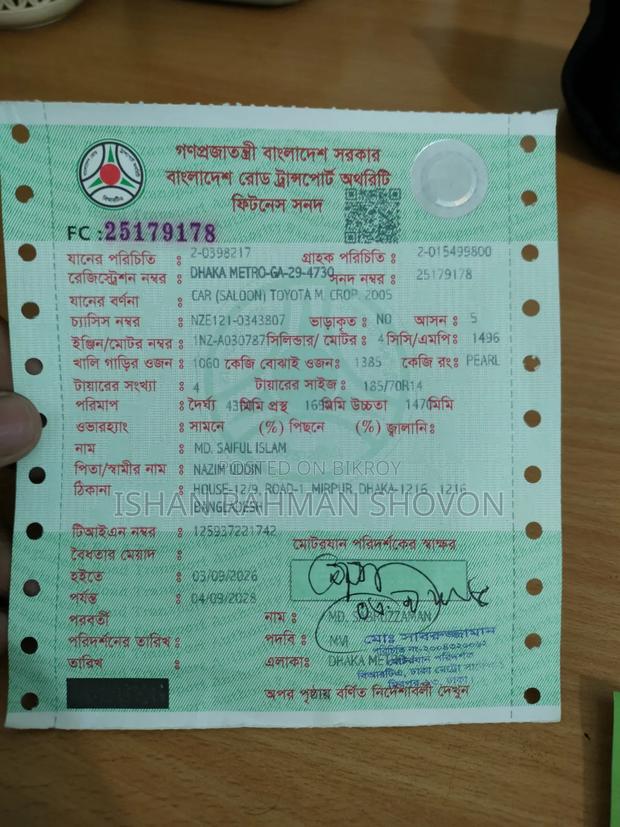 গণপ্রজাতন্ত্রী বাংলাদেশ সরকার
বাংলাদেশ রোড ট্রান্সপোর্ট অথরিটি
ফিটনেস সনদ
FC :25179178
যানের পরিচিতি : 2-0398217 গ্রাহক পরিচিতি : 2-015499800
রেজিস্ট্রেশন নম্বর : DHAKA METRO-GA-29-4730 সনদ নম্বর : 25179178
যানের বর্ণনা : CAR (SALOON) TOYOTA M. CROP. 2005
চ্যাসিস নম্বর : NZE121-0343807 ভাড়াকৃত : NO আসন : 5
ইঞ্জিন/মোটর নম্বর : 1NZ-A030787 সিলিন্ডার/ মোটর : 4 সিসি/এমপি: 1496
খালি গাড়ির ওজন : 1060 কেজি বোঝাই ওজন: 1385 কেজি রং: PEARL
টায়ারের সংখ্যা : 4 টায়ারের সাইজ : 185/70R14
পরিমাপ : দৈর্ঘ্য মিমি প্রস্থ মিমি উচ্চতা 1470 মিমি
ওভারহ্যাং : সামনে (%) পিছনে (%) জ্বালানি:
নাম : MD. SAIFUL ISLAM
পিতা/স্বামীর নাম : NAZIM UDDIN
POSTED ON BIKROY
ঠিকানা : HOUSE-12/9, ROAD-1, MIRPUR, DHAKA-1216, 1216,
ISHAN RAHMAN SHOVON
BANGLADESH
টিআইএন নম্বর : 125937221742
বৈধতার মেয়াদ : মোটরযান পরিদর্শকের স্বাক্ষর
হইতে : 03/09/2026
পর্যন্ত : 04/09/2028
পরবর্তী নাম : MD.
পরিদর্শনের তারিখ : পদবি : MVI মোঃ সাবরুজ্জামান
তারিখ : এলাকা: DHAKA
মোটরযান পরিদর্শক
অপর পৃষ্ঠায় বর্ণিত নির্দেশাবলী দেখুন